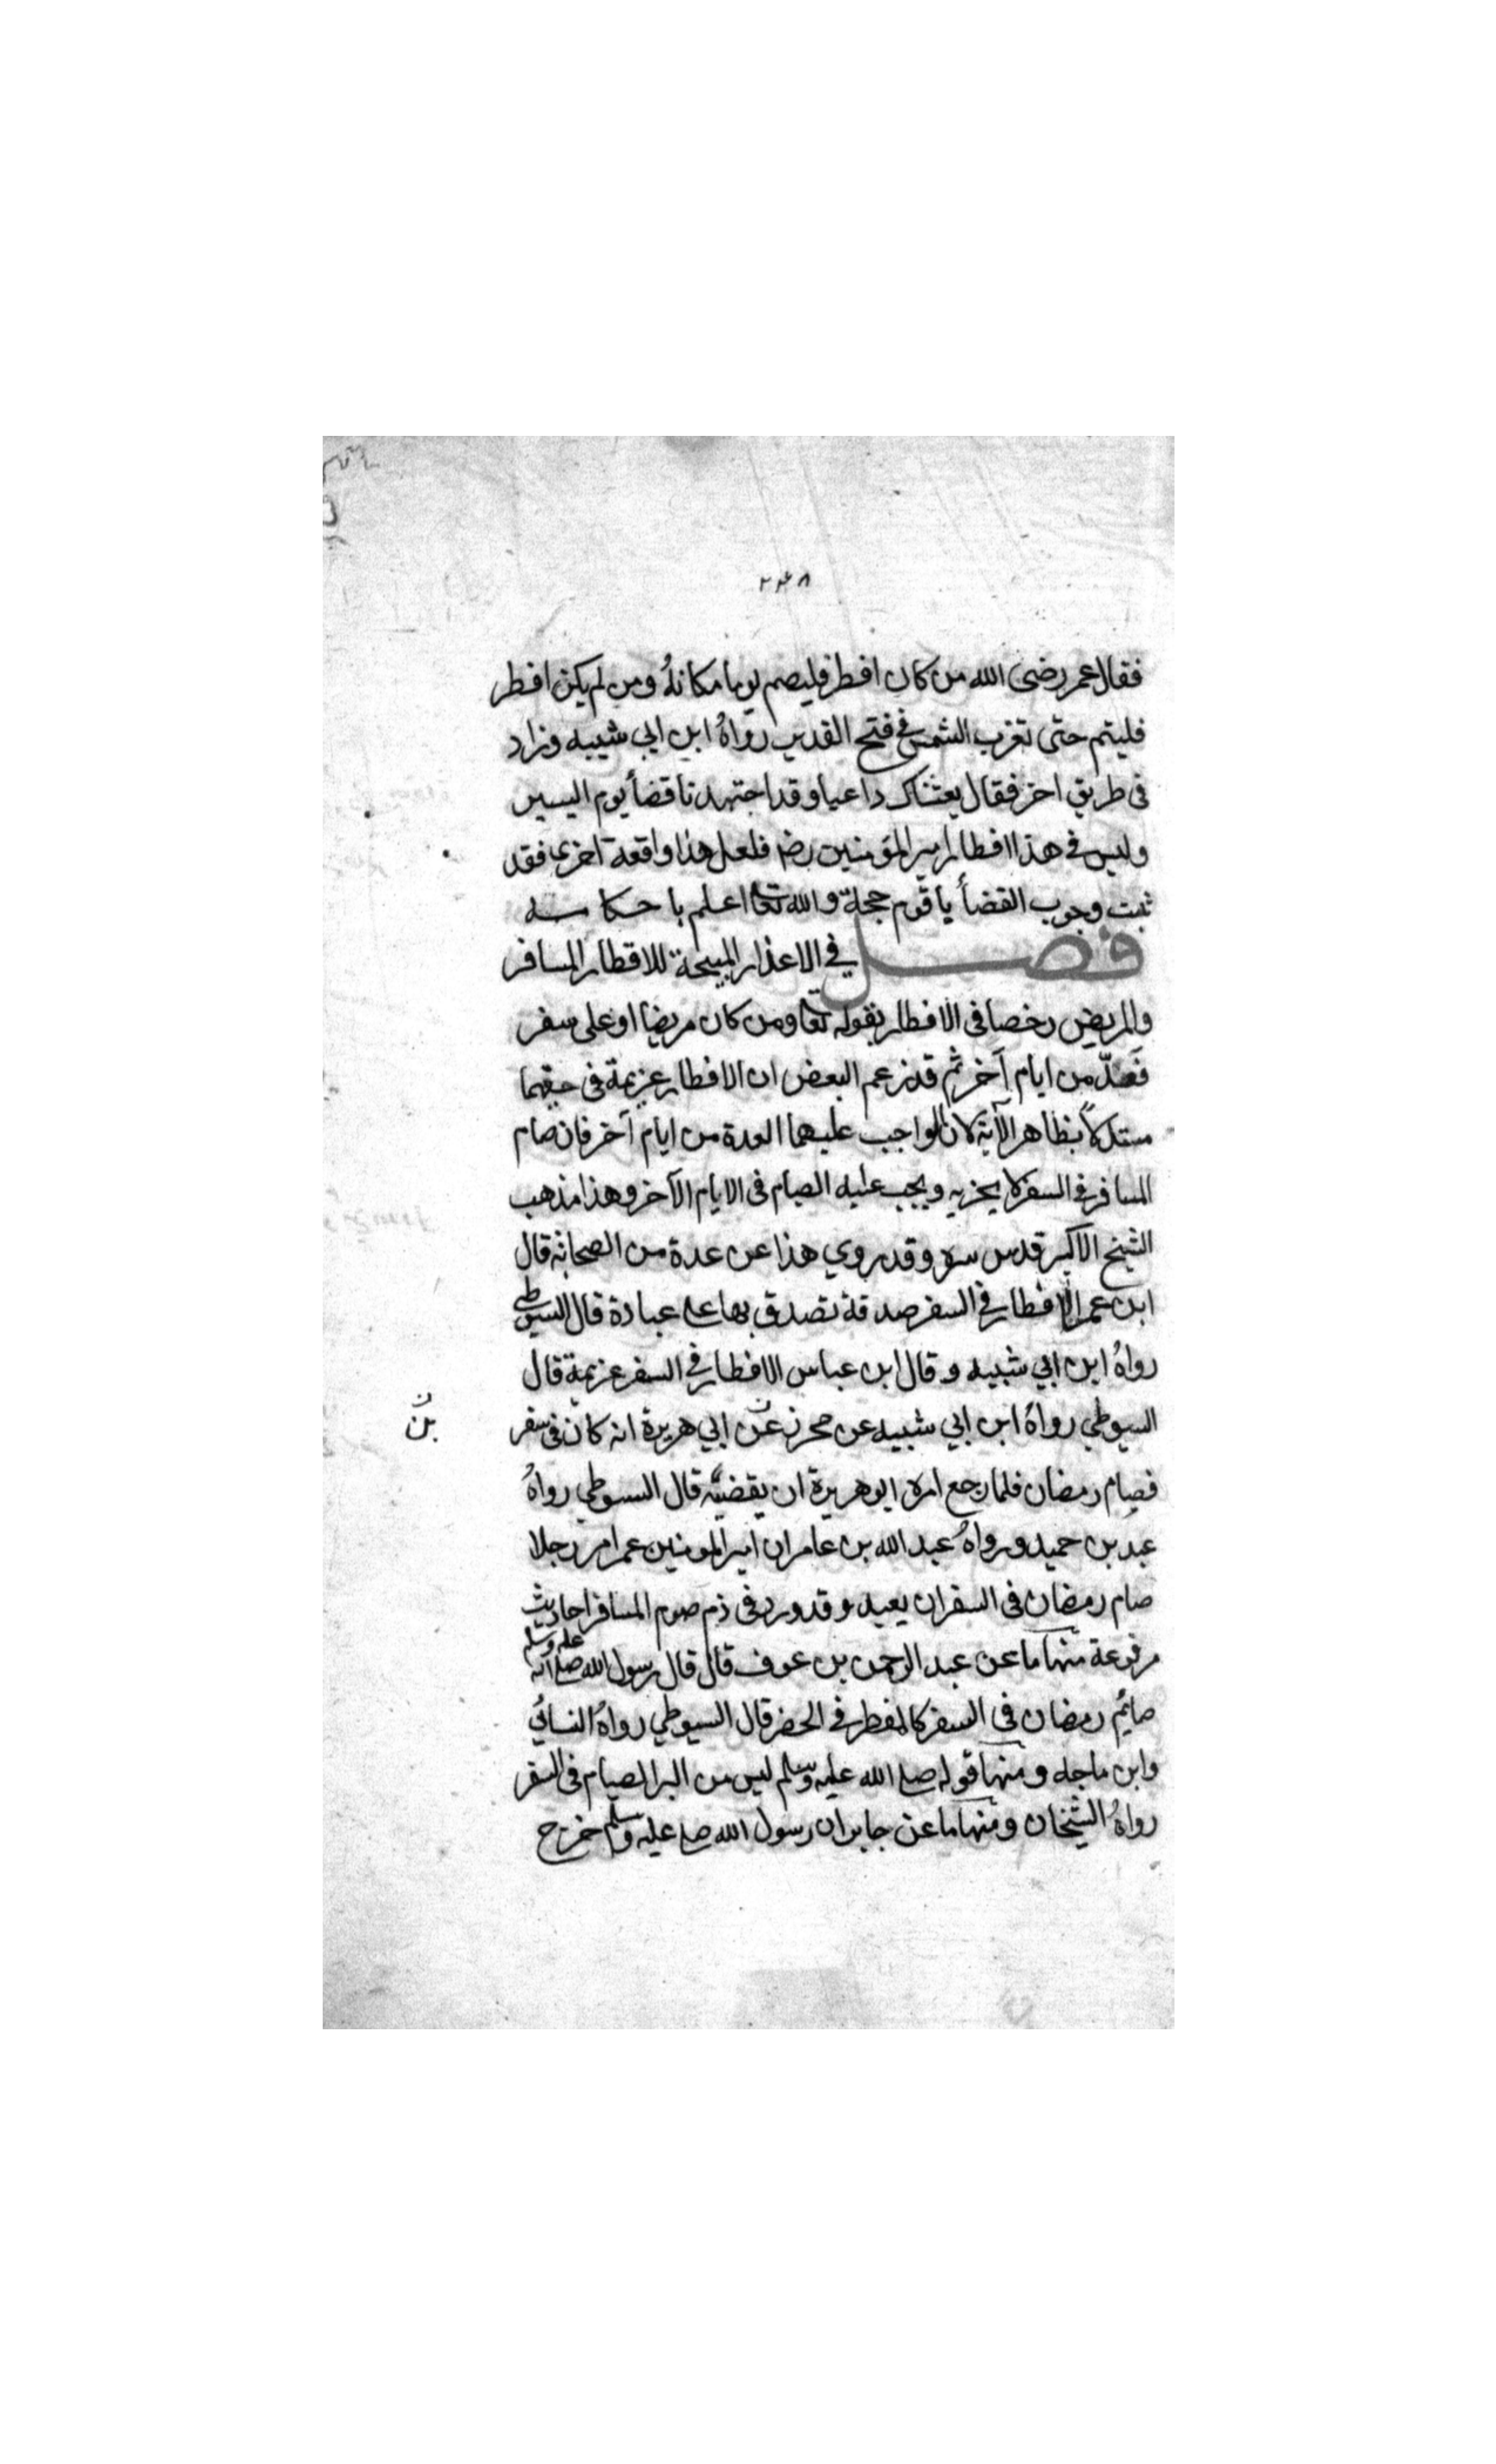 ٢٤٨
فقال عمر رضى الله من كان افطر فليصم يوما مكانهُ ومن لم يكن افطر
فليتم حتى تغرب الشمس فى فتح القدير رواهُ ابن ابي شيبه وزاد
فى طريق اخر فقال بعثناك داعيا وقد اجتهدنا قضأ يوم اليسير
وليس فى هذا افطار امير المؤمنين رضـ فلعل هذا واقعة اخرى فقد
ثبت وجوب القضأ ياقوم حجة والله تعا اعلم باحكامـــه
فصـــــل في الاعذار المبيحة للافطار المسافر
والمريض رخصا فى الافطار بقوله تعا ومن كان مريضا او على سفر
فعدّ من ايام آخر ثم قد زعم البعض ان الافطار عزيمة فى حقهما
مستدلاً بظاهر الآية لان الواجب عليهما العدة من ايام آخر فان صام
المسافر فى السفر لا يجزيه ويجب عليه الصيام فى الايام الآخر وهذا مذهب
الشيخ الاكبر قدس سره وقد روي هذا عن عدة من الصحابة قال
ابن عمر الافطار في السفر صدقة تصدق بها على عبادة قال السيوطى
رواهُ ابن ابي شيبه وقال ابن عباس الافطار في السفر عزيمة قال
السيوطي رواهُ ابن ابي شيبه عن محرز عن ابي هريرة انه كان فى سفر
بن
فصام رمضان فلما رجع امره ابو هريرة ان يقضيه قال السيوطي رواهُ
عبد بن حميد ورواهُ عبد الله بن عامر ان امير المومنين عمر امر رجلا
صام رمضان فى السفر ان يعيد وقد ورد فى ذم صوم المسافر احاديث
مرفوعة منها ما عن عبد الرحمن بن عوف قال قال رسول الله صلى الله عليه وسلم
صايم رمضان فى السفر كالمفطر فى الحضر قال السيوطي رواهُ النسائي
وابن ماجه ومنها قوله صلى الله عليه وسلم ليس من البر الصيام فى السفر
رواهُ الشيخان ومنها ما عن جابر ان رسول الله صلى عليه وسلم خرج